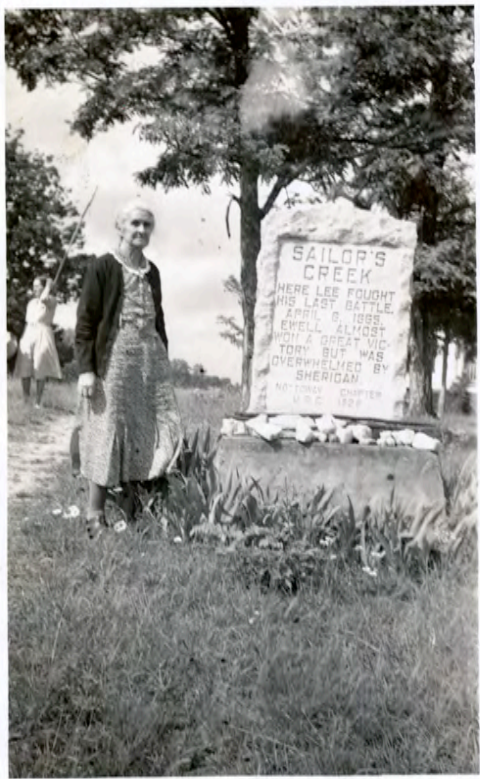 SAILOR'S
CREEK
HERE LEE FOUGHT
HIS LAST BATTLE.
APRIL 6, 1865.
EWELL ALMOST
WON A GREAT VIC-
TORY BUT WAS
OVERWHELMED BY
SHERIDAN.
CHAPTER
1928